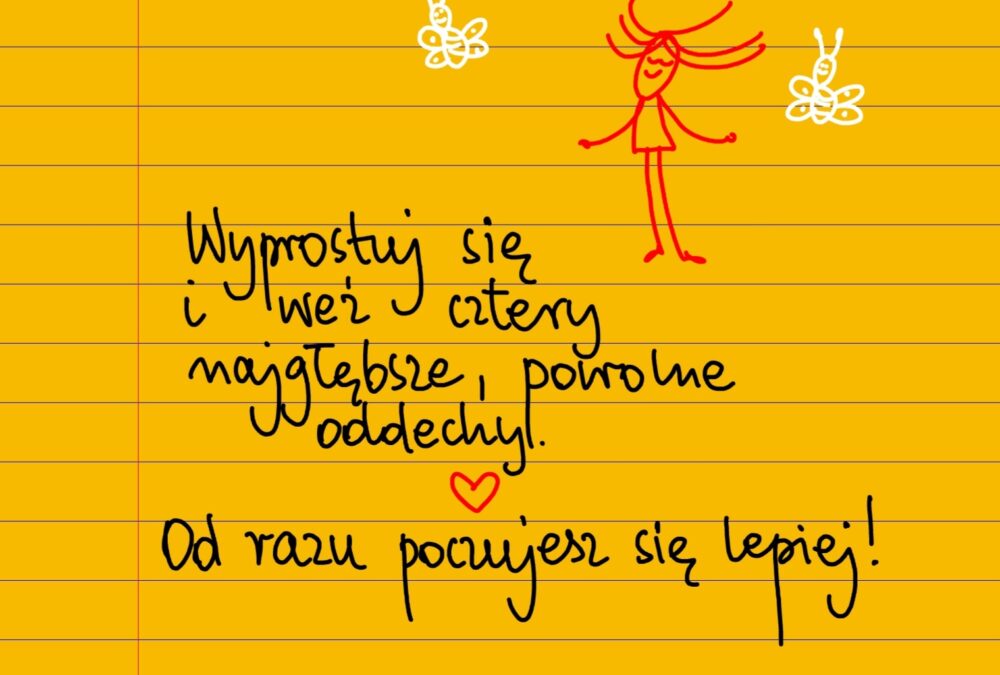 Wyprostuj się
i weź cztery
najgłębsze, powolne
oddechy.
Od razu poczujesz się lepiej!